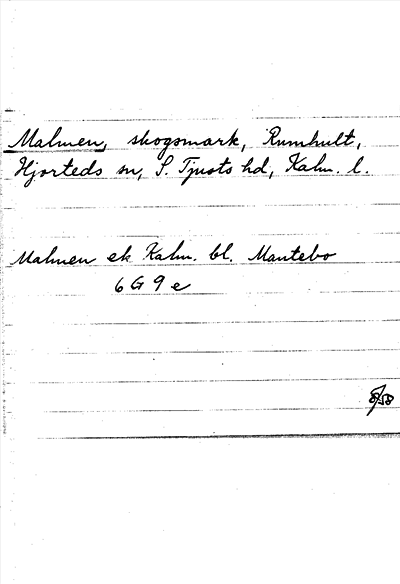 Malmen, skogsmark, Rumhult,
Hjorteds sn, S. Tjusts hd, Kalm. l.
Malmen ek Kalm. bl. Mantebo
6 G 9 e